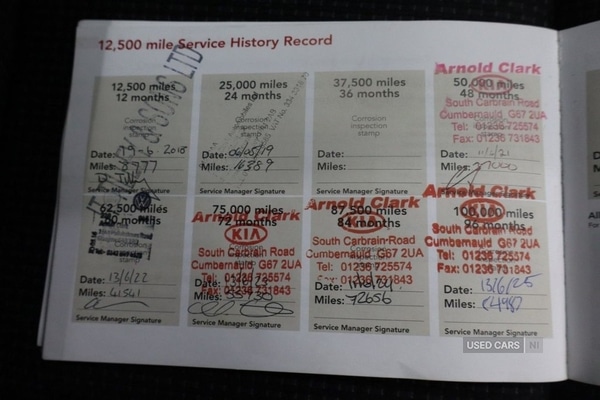 12,500 mile Service History Record
12,500 miles
12 months
Corrosion
inspection
stamp
Date: 29-6-2018
Miles: 8977
Service Manager Signature
25,000 miles
24 months
Date: 06/05/19
Miles: 16389
Service Manager Signature
37,500 miles
36 months
Corrosion
inspection
stamp
Date:
Miles:
Service Manager Signature
Arnold Clark
50,000 miles
48 months
South Carbrain Road
Cumbernauld G67 2UA
Tel: 01236 725574
Fax: 01236 731843
Date:
Miles: 27000
Service Manager Signature
62,500 miles
60 months
Date: 13/6/22
Miles: 41541
Service Manager Signature
Arnold Clark
75,000 miles
72 months
KIA
South Carbrain Road
Cumbernauld G67 2UA
Tel: 01236 725574
Fax: 01236 731843
Date:
Miles:
Service Manager Signature
Arnold Clark
87,500 miles
84 months
KIA
South Carbrain Road
Cumbernauld G67 2UA
Tel: 01236 725574
Fax: 01236 731843
Date:
Miles: 72656
Service Manager Signature
Arnold Clark
100,000 miles
96 months
KIA
South Carbrain Road
Cumbernauld G67 2UA
Tel: 01236 725574
Fax: 01236 731843
Date: 13/6/25
Miles:
Service Manager Signature
USED CARS NI